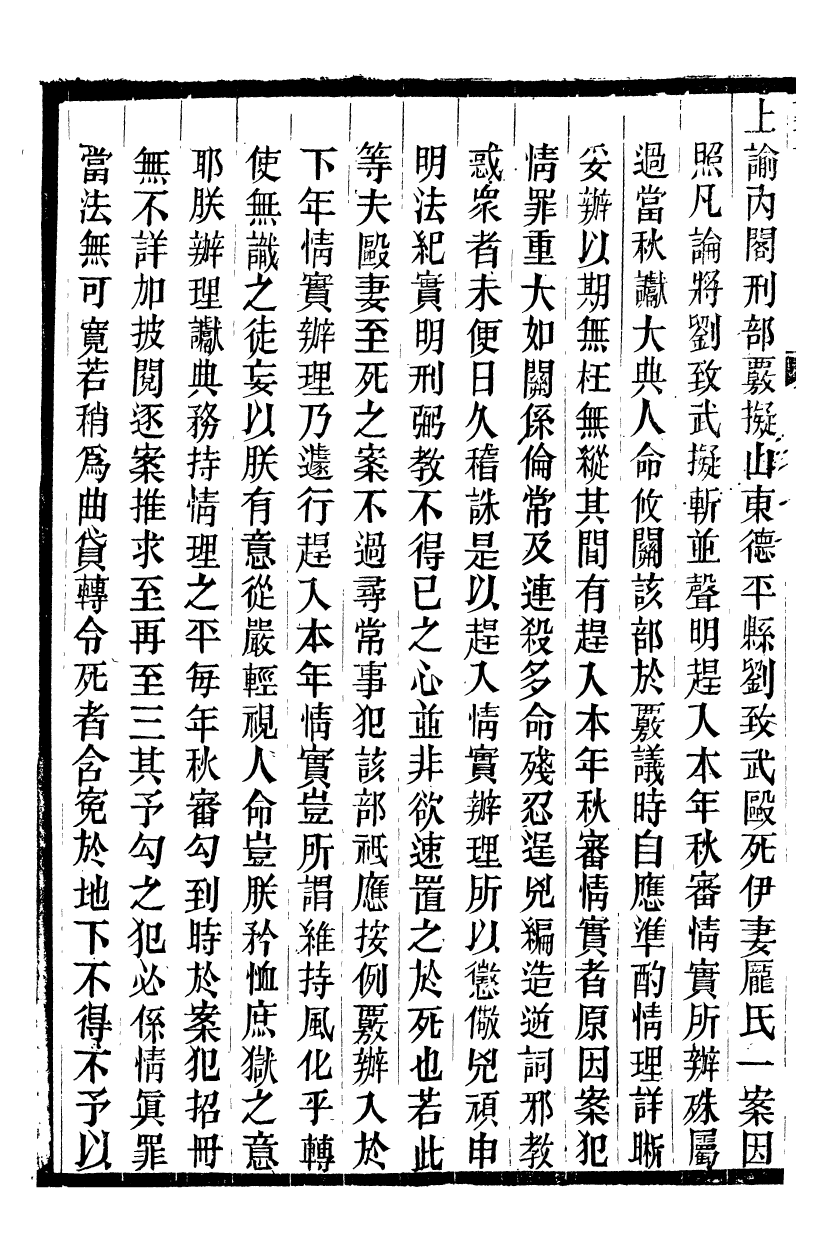 上諭內閣刑部覈擬山東德平縣劉致武毆死伊妻龐氏一案因
照凡論將劉致武擬斬並聲明趕入本年秋審情實所辦殊屬
過當秋讞大典人命攸關該部於覈議時自應準酌情理詳晰
妥辦以期無枉無縱其間有趕入本年秋審情實者原因案犯
情罪重大如關係倫常及連殺多命殘忍逞兇編造逆詞邪教
惑衆者未便日久稽誅是以趕入情實辦理所以懲儆兇頑申
明法紀實明刑弼教不得已之心並非欲速置之於死也若此
等夫毆妻至死之案不過尋常事犯該部祗應按例覈辦入於
下年情實辦理乃遽行趕入本年情實豈所謂維持風化乎轉
使無識之徒妄以朕有意從嚴輕視人命豈朕矜恤庶獄之意
耶朕辦理讞典務持情理之平每年秋審勾到時於案犯招冊
無不詳加披閱逐案推求至再至三其予勾之犯必係情眞罪
當法無可寛若稍爲曲貸轉令死者含寃於地下不得不予以